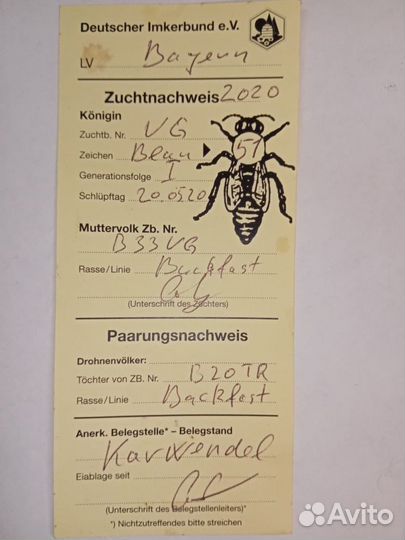 Deutscher Imkerbund e.V.
LV Bayern
Zuchtnachweis 2020
Königin
Zuchtb. Nr. VG
Zeichen Blau 51
Generationsfolge I
Schlüpftag 20.05.20
Muttervolk Zb. Nr.
B33VG
Rasse/Linie Buckfast
(Unterschrift des Züchters)
Paarungsnachweis
Drohnenvölker:
Töchter von ZB. Nr. B20TR
Rasse/Linie Backfast
Anerk. Belegstelle* – Belegstand
Karwendel
Eiablage seit
(Unterschrift des Belegstellenleiters)*
*) Nichtzutreffendes bitte streichen
Avito